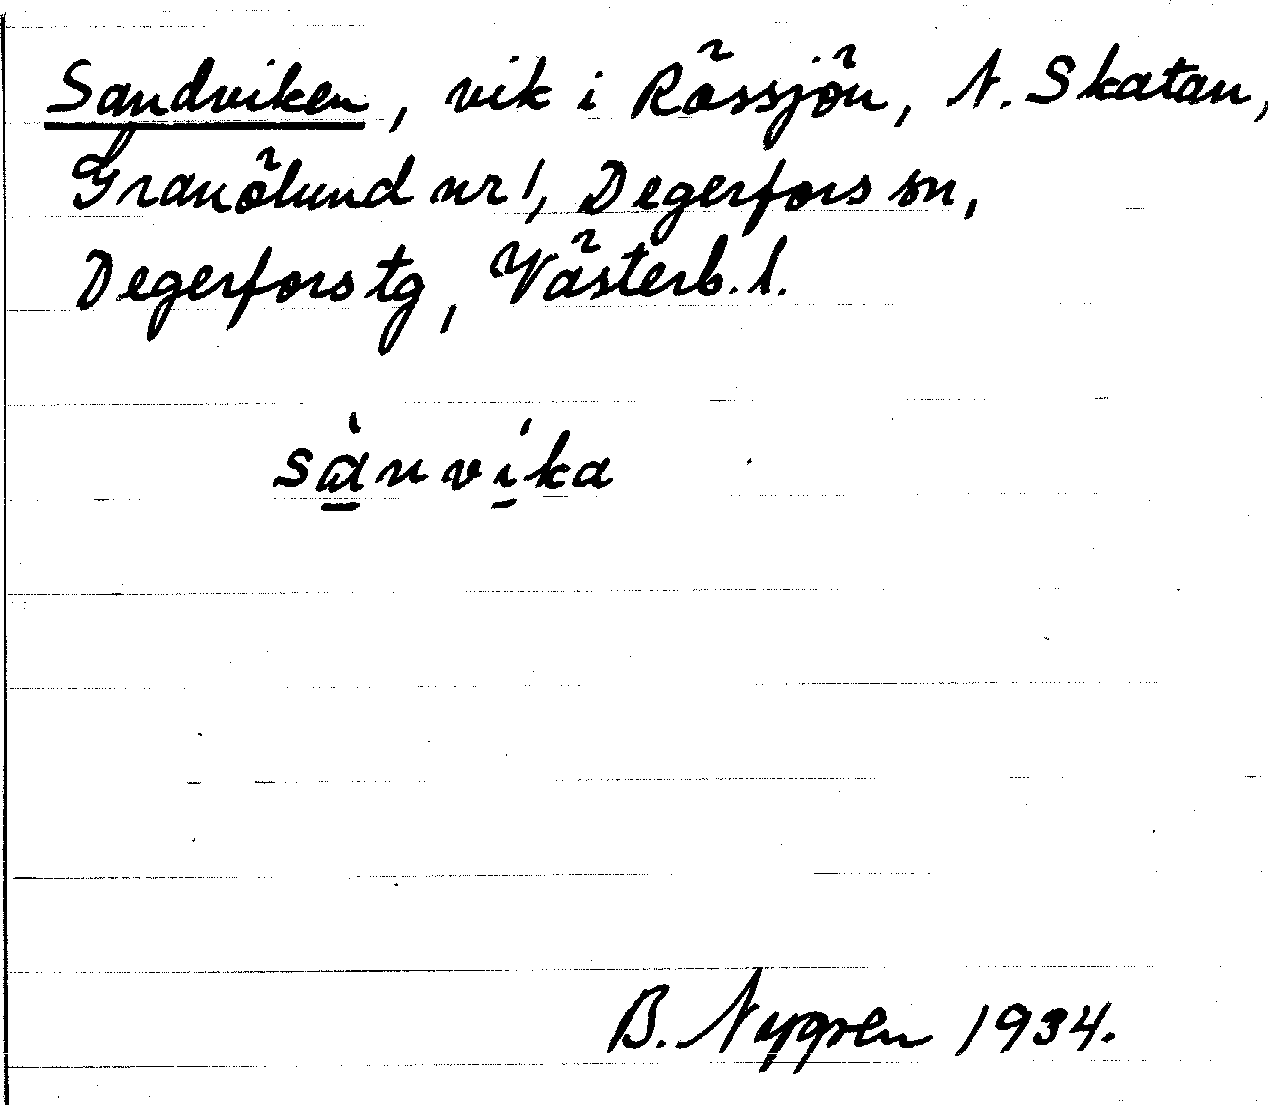 Sandviken, vik i Rässjön, N. Skatan,
Granölund nr 1, Degerfors sn,
Degerfors tg, Västerb. l.
sànvíka
B. Nygren 1934.